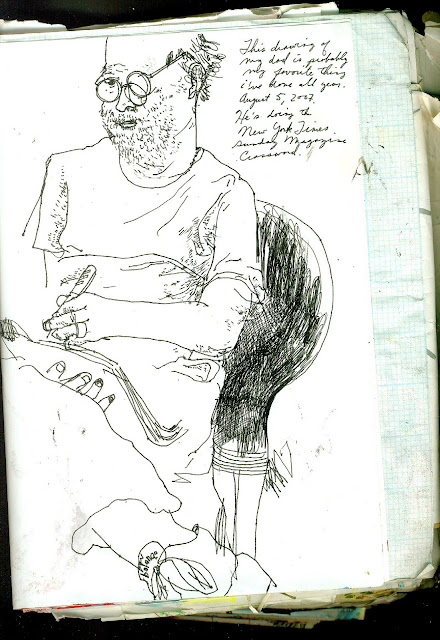 This drawing of
my dad is probably
my favorite thing
i've done all year.
August 5, 2007.
He's doing th
New York Times
Sunday Magazine
Crossword.